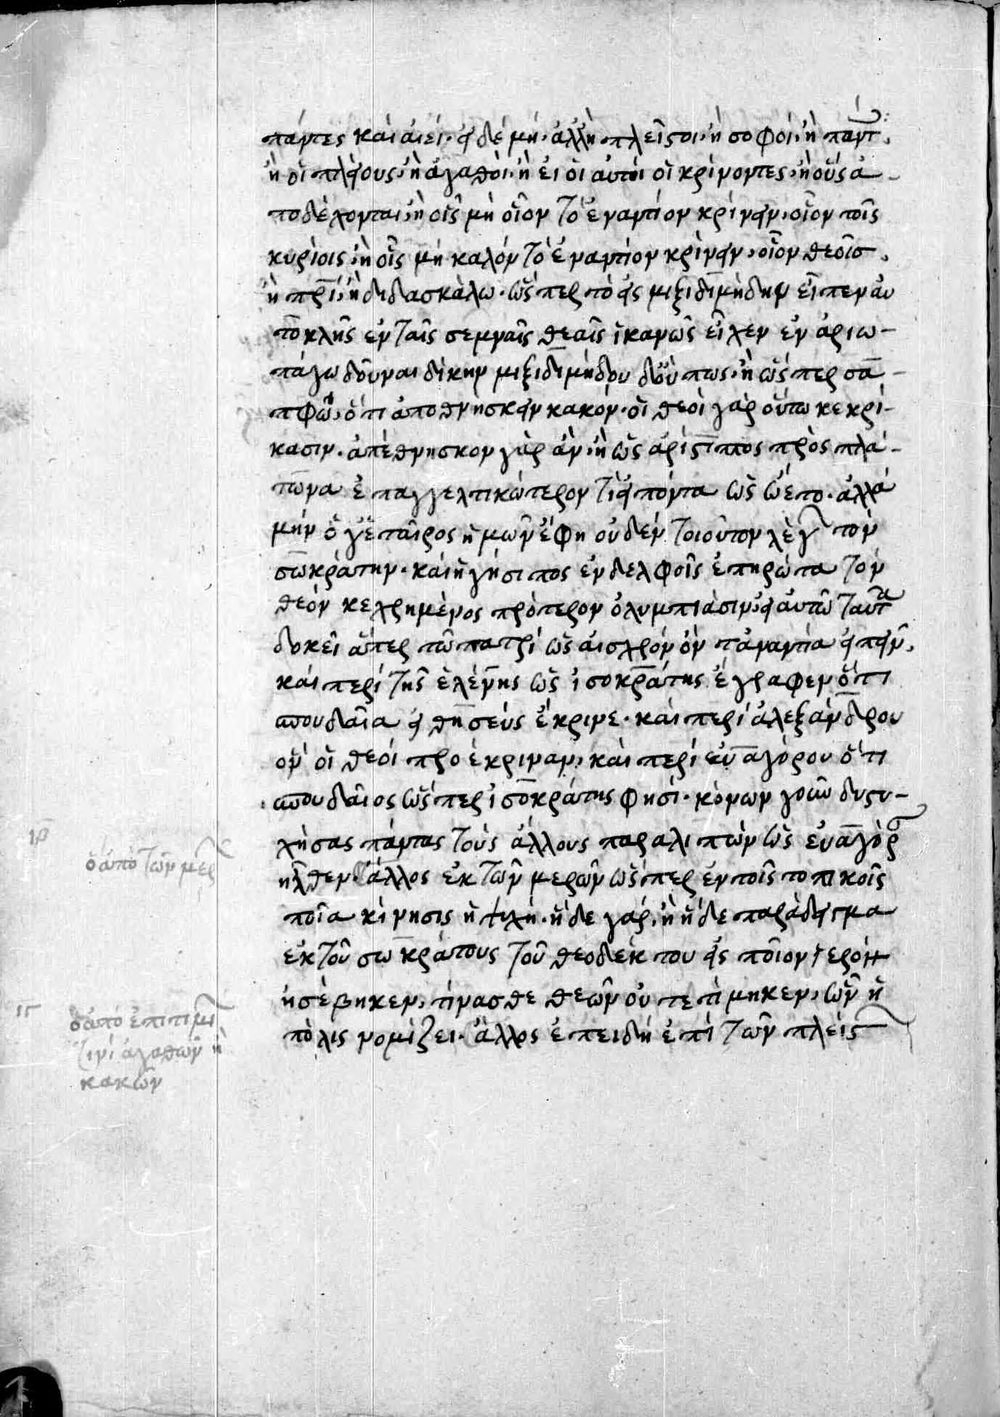 πάντες καὶ ἀεί· εἰ δὲ μή· ἀλλ' ἢ πλεῖστοι· ἢ σοφοί· ἢ πάντ
ἢ οἱ πλείους· ἢ ἀγαθοί· ἢ εἰ οἱ αὐτοὶ οἱ κρίνοντες· ἢ οὓς ἀ-
ποδέχονται· ἢ οἷς μὴ οἷον τὸ ἐναντίον κρίνειν· οἷον τοῖς
κυρίοις· ἢ οἷς μὴ καλὸν τὸ ἐναντίον κρίνειν· οἷον θεοῖσ
ἢ πρῖ· ἢ διδασκάλω· ὥσπερ τὸ εἰς μιξιδημίδην εἶπεν αὐ
τοκλῆς ἐν ταῖς σεμναῖς θεαῖς ἱκανῶς εἶχεν ἐν ἀρίω-
πάγω δοῦναι δίκην μιξιδημίδου δ' οὔπως· ἢ ὥσπερ σα-
πφώ· ὅτι ἀποθνήσκειν κακόν· οἱ θεοὶ γὰρ οὕτω κεκρί-
κασιν· ἀπέθνησκον γὰρ ἄν· ἢ ὡς ἀρίστιππος πρὸς πλά-
τωνα ἐπαγγελτικώτερον τὶ εἰπόντα ὡς ὤετο· ἀλλὰ
μὴν ὅ γ' ἑταῖρος ἡμῶν ἔφη οὐδὲν τοιοῦτον λέγ τὸν
σωκράτην· καὶ ἡγήσιπος ἐν δελφοῖς ἐπηρώτα τὸν
θεὸν κεχρημένος πρότερον ὀλυμπιάσιν· εἰ αὐτῶ ταῦτα
δοκεῖ ἅπερ τῶ πατρὶ ὡς αἰσχρὸν ὂν τἀναντία εἰπεῖν·
καὶ περὶ τῆς ἑλένης ὡς ἰσοκράτης ἔγραφεν ὅτι
σπουδαία εἰ θησεὺς ἔκρινε· καὶ περὶ ἀλεξάνδρου
ὃν οἱ θεοὶ προέκριναν· καὶ περὶ εὐαγόρου ὅτι
σπουδαῖος ὥσπερ ἰσοκράτης φησί· κόνων γοῦν δυστυ-
χήσας πάντας τοὺς ἄλλους παραλιπὼν ὡς εὐαγόρ
ἦλθεν ἄλλος ἐκ τῶν μερῶν ὥσπερ ἐν τοῖς τοπικοῖς
ποία κίνησις ἡ ψυχή· ἥδε γάρ· ἢ ἥδε παράδειγμα
ἐκ τοῦ σωκράτους τοῦ θεοδέκτου εἰς ποῖον ἱερὸν
ἠσέβηκεν· τίνας θε θεῶν οὐ τετίμηκεν· ὧν ἡ
πόλις νομίζει· ἄλλος ἐπειδὴ ἐπὶ τῶν πλείς
ὁ ἀπὸ τῶν μερ
ὁ ἀπὸ ἐπιτιμι
τινὶ ἀγαθῶν ἢ
κακῶν